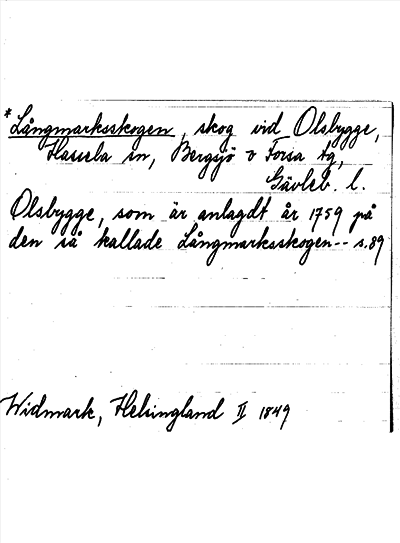 *Långmarksskogen, skog vid Olsbygge,
Hassela sn, Bergsjö o Forsa tg,
Gävleb. l.
Olsbygge, som är anlagdt år 1759 på
den så kallade Långmarksskogen-- s.89
Widmark, Helsingland II 1849